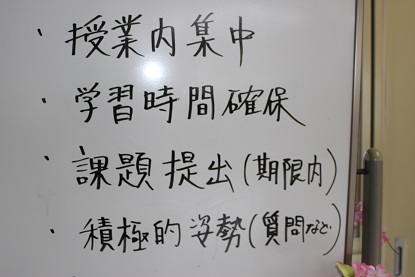 ・授業内集中
・学習時間確保
・課題提出(期限内)
・積極的姿勢(質問など)